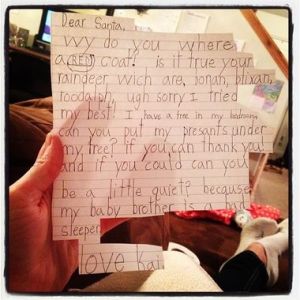 Dear Santa,
Wy do you where
a RED coat? is it true your
raindeer wich are, Jonah, blixan,
roodalph, ugh sorry I tried
my best! I have a tree in my bedroom
can you put my presants under
my tree? if you can thank you!
and if you could can you
be a little quiet? because
my baby brother is a bad
sleeper
love Kali